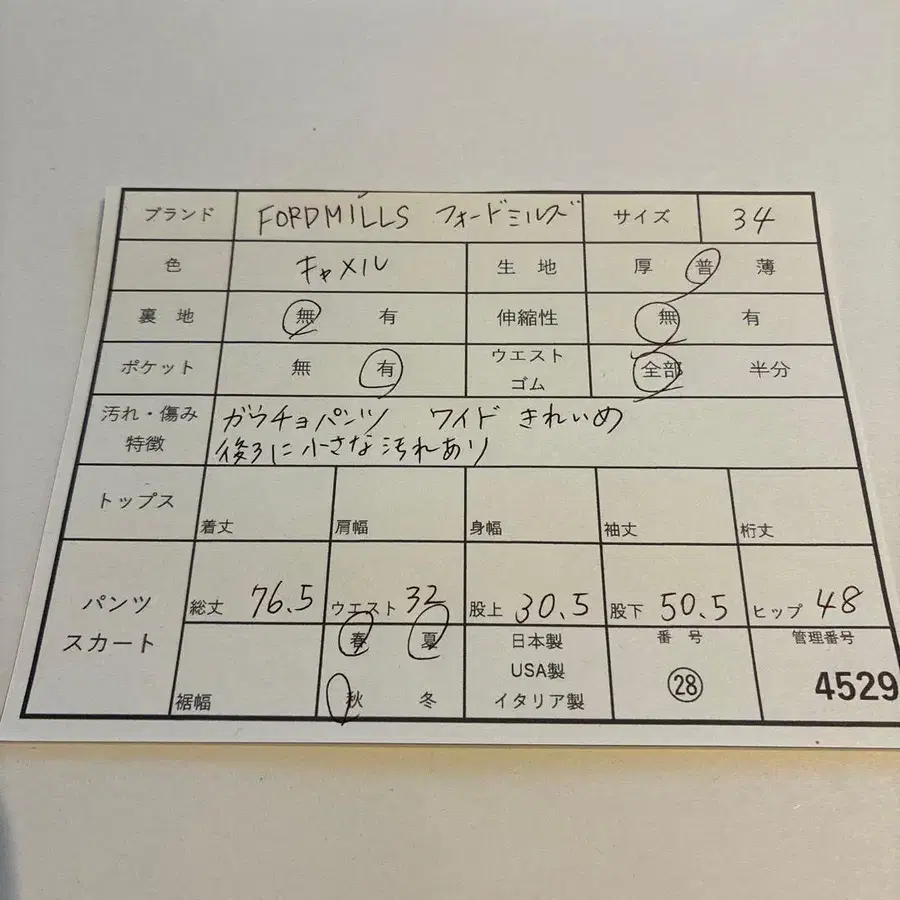 ブランド FORDMILLS フォードミルズ サイズ 34
色 キャメル 生地 厚 普 薄
裏地 無 有 伸縮性 無 有
ポケット 無 有 ウエストゴム 全部 半分
汚れ・傷み 特徴 ガウチョパンツ ワイド きれいめ
後ろに小さな汚れあり
トップス 着丈 肩幅 身幅 袖丈 裄丈
パンツ スカート 総丈 76.5 ウエスト 32 股上 30.5 股下 50.5 ヒップ 48
裾幅 春 夏 秋 冬 日本製 USA製 イタリア製 番号 ㉘ 管理番号 4529